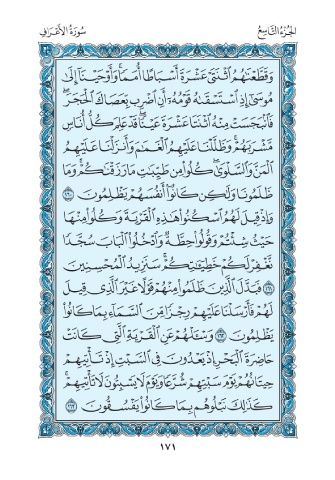 الجزء التاسع
سورة الأعراف
وَقَطَّعْنَٰهُمُ ٱثْنَتَىْ عَشْرَةَ أَسْبَاطًا أُمَمًا ۚ وَأَوْحَيْنَآ إِلَىٰ
مُوسَىٰٓ إِذِ ٱسْتَسْقَىٰهُ قَوْمُهُۥٓ أَنِ ٱضْرِب بِّعَصَاكَ ٱلْحَجَرَ ۖ
فَٱنۢبَجَسَتْ مِنْهُ ٱثْنَتَا عَشْرَةَ عَيْنًا ۖ قَدْ عَلِمَ كُلُّ أُنَاسٍ
مَّشْرَبَهُمْ ۚ وَظَلَّلْنَا عَلَيْهِمُ ٱلْغَمَٰمَ وَأَنزَلْنَا عَلَيْهِمُ
ٱلْمَنَّ وَٱلسَّلْوَىٰ ۖ كُلُوا۟ مِن طَيِّبَٰتِ مَا رَزَقْنَٰكُمْ ۚ وَمَا
ظَلَمُونَا وَلَٰكِن كَانُوٓا۟ أَنفُسَهُمْ يَظْلِمُونَ ١٦٠
وَإِذْ قِيلَ لَهُمُ ٱسْكُنُوا۟ هَٰذِهِ ٱلْقَرْيَةَ وَكُلُوا۟ مِنْهَا
حَيْثُ شِئْتُمْ وَقُولُوا۟ حِطَّةٌ وَٱدْخُلُوا۟ ٱلْبَابَ سُجَّدًا
نَّغْفِرْ لَكُمْ خَطِيٓـَٰٔتِكُمْ ۚ سَنَزِيدُ ٱلْمُحْسِنِينَ
١٦١ فَبَدَّلَ ٱلَّذِينَ ظَلَمُوا۟ مِنْهُمْ قَوْلًا غَيْرَ ٱلَّذِى قِيلَ
لَهُمْ فَأَرْسَلْنَا عَلَيْهِمْ رِجْزًا مِّنَ ٱلسَّمَآءِ بِمَا كَانُوا۟
يَظْلِمُونَ ١٦٢ وَسْـَٔلْهُمْ عَنِ ٱلْقَرْيَةِ ٱلَّتِى كَانَتْ
حَاضِرَةَ ٱلْبَحْرِ إِذْ يَعْدُونَ فِى ٱلسَّبْتِ إِذْ تَأْتِيهِمْ
حِيتَانُهُمْ يَوْمَ سَبْتِهِمْ شُرَّعًا وَيَوْمَ لَا يَسْبِتُونَ ۙ لَا تَأْتِيهِمْ ۚ
كَذَٰلِكَ نَبْلُوهُم بِمَا كَانُوا۟ يَفْسُقُونَ ١٦٣
١٧١